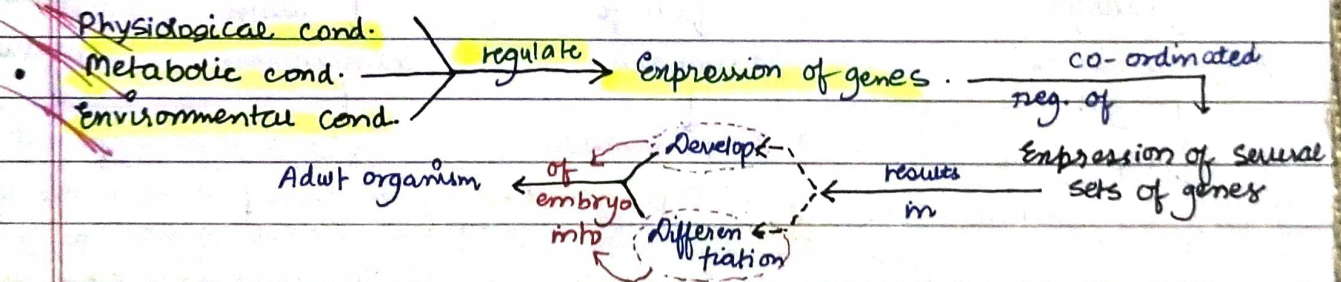 Physiological cond.
• Metabolic cond. regulate Expression of genes. co-ordinated
reg. of
Environmental cond.
Expression of several
sets of genes
results
in
Develop
Differen
tiation
of
embryo
into
Adult organism